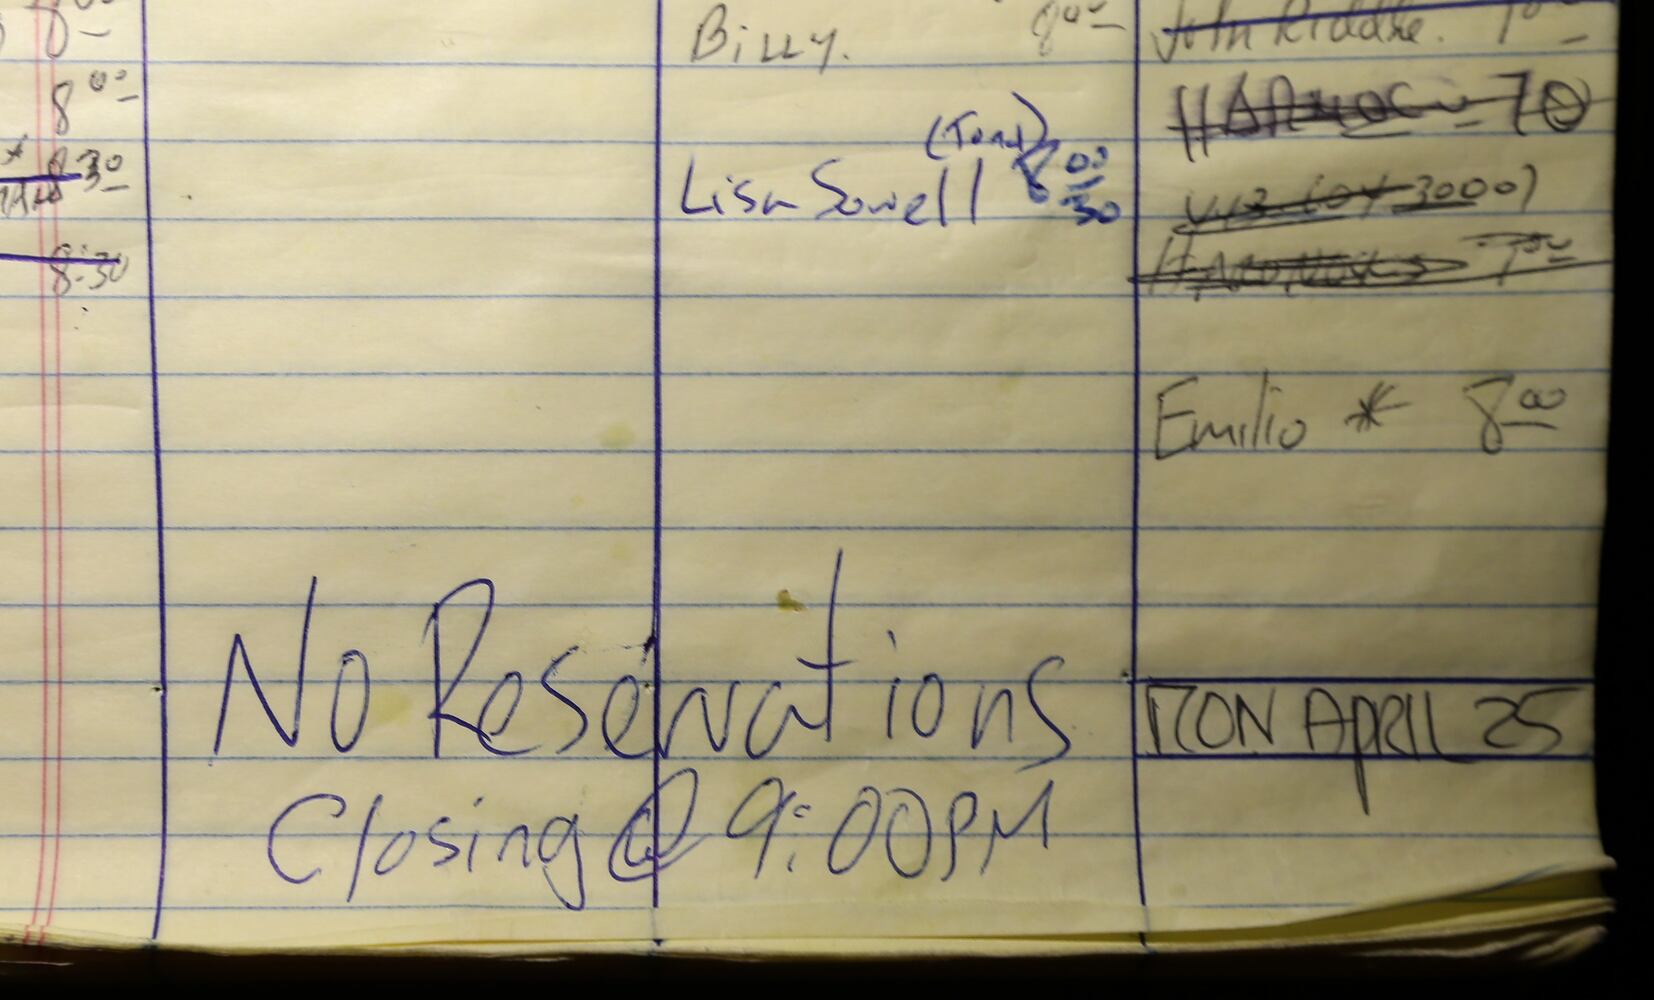 8:00
8:30
8:30
Billy. 8:00
(Toad)
Lisa Sowell 8:00
30
John Riddle. 7:00
Emilio * 8:00
No Reservations
Closing @ 9:00PM
MON APRIL 25